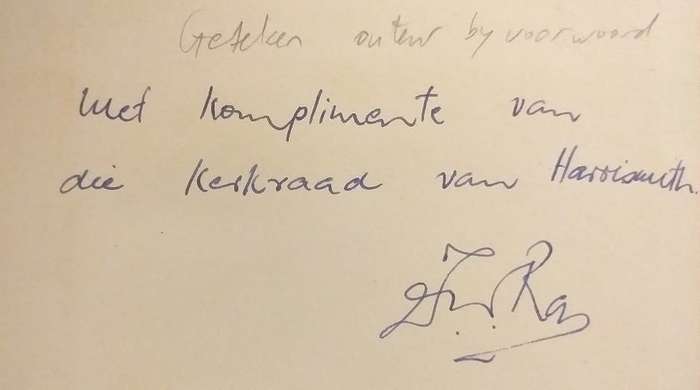 Geteken outeur by voorwoord
Met komplimente van
die Kerkraad van Harrismith.
Ras